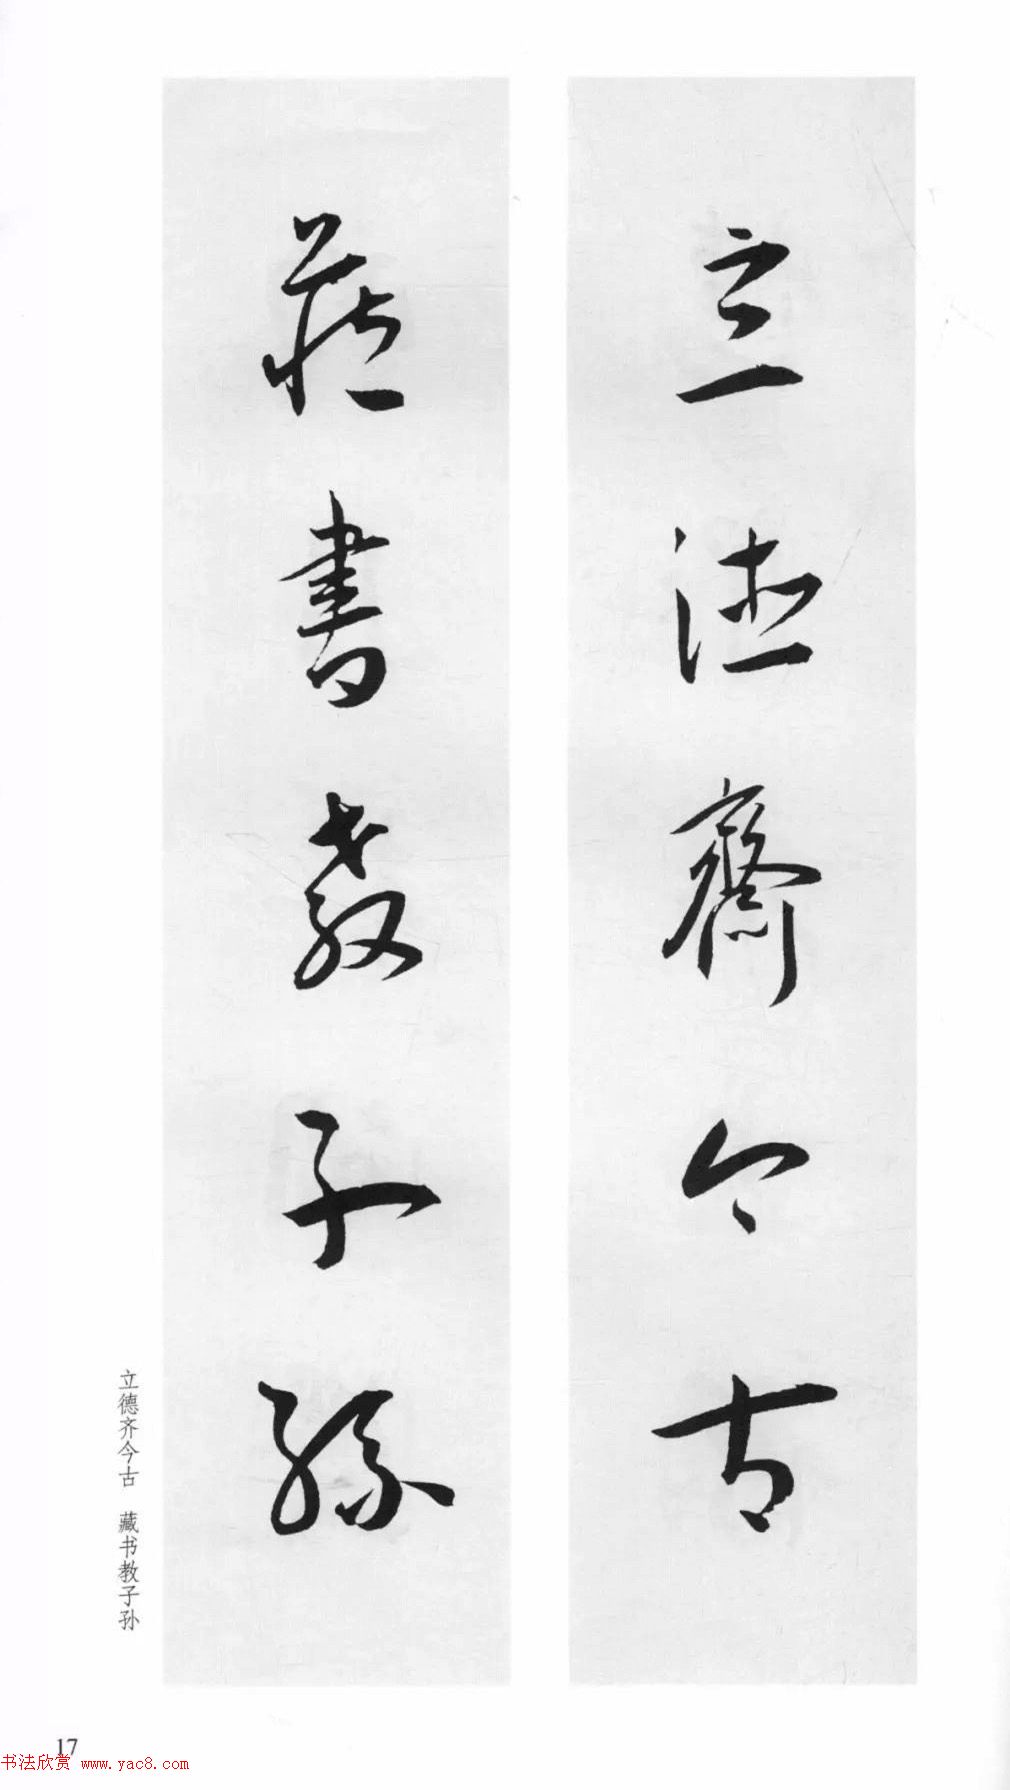 立德齊今古
藏書教子孫
立德齐今古　藏书教子孙
17
书法欣赏 www.yac8.com